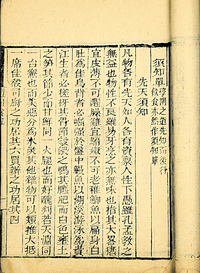 須知單 學問之道先知而後行
飲食亦然作須知單
先天須知
凡物各有先天如人各有資稟人性下愚雖孔孟教之
無益也物性不良雖易牙烹之亦無味也指其大略豬
宜皮薄不可腥臊雞宜騸嫩不可老稚鯽魚以扁身白
肚為佳烏背者必崛強於盤中鰻魚以湖溪游泳為貴
江生者必槎枒其骨節穀喂之鴨其膘肥而白色壅土
之筍其節少而甘鮮同一火腿也而好醜判若天淵同
一台鯗也而美惡分為冰炭其他雜物可以類推大抵
一席佳餚司廚之功居其六買辦之功居其四